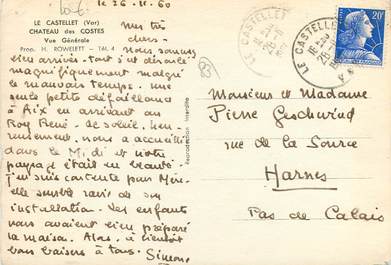 LE CASTELLET (Var)
CHATEAU des COSTES
Vue Générale
Prop. H. ROWELETT - Tél. 4
le 26-11-60
mes très
chers - Nous sommes
bien arrivés - tout s'est déroulé
magnifiquement malgré
le mauvais temps - une
seule petite défaillance
Aix en arrivant au
Roy René - le soleil, heu-
reusement, nous a accueilli
dans le Midi et notre
paysage était en beauté -
j'ai suis contente pour
semble ravie de son
installation - Les enfants
nous avaient bien préparé
la maison. Alors à bientôt
bons baisers à tous - Simone
Reproduction interdite
LE CASTELLET
LE CASTELLET
20F
Monsieur et Madame
Pierre Geschwind
rue de la Source
Harnes
Pas de Calais